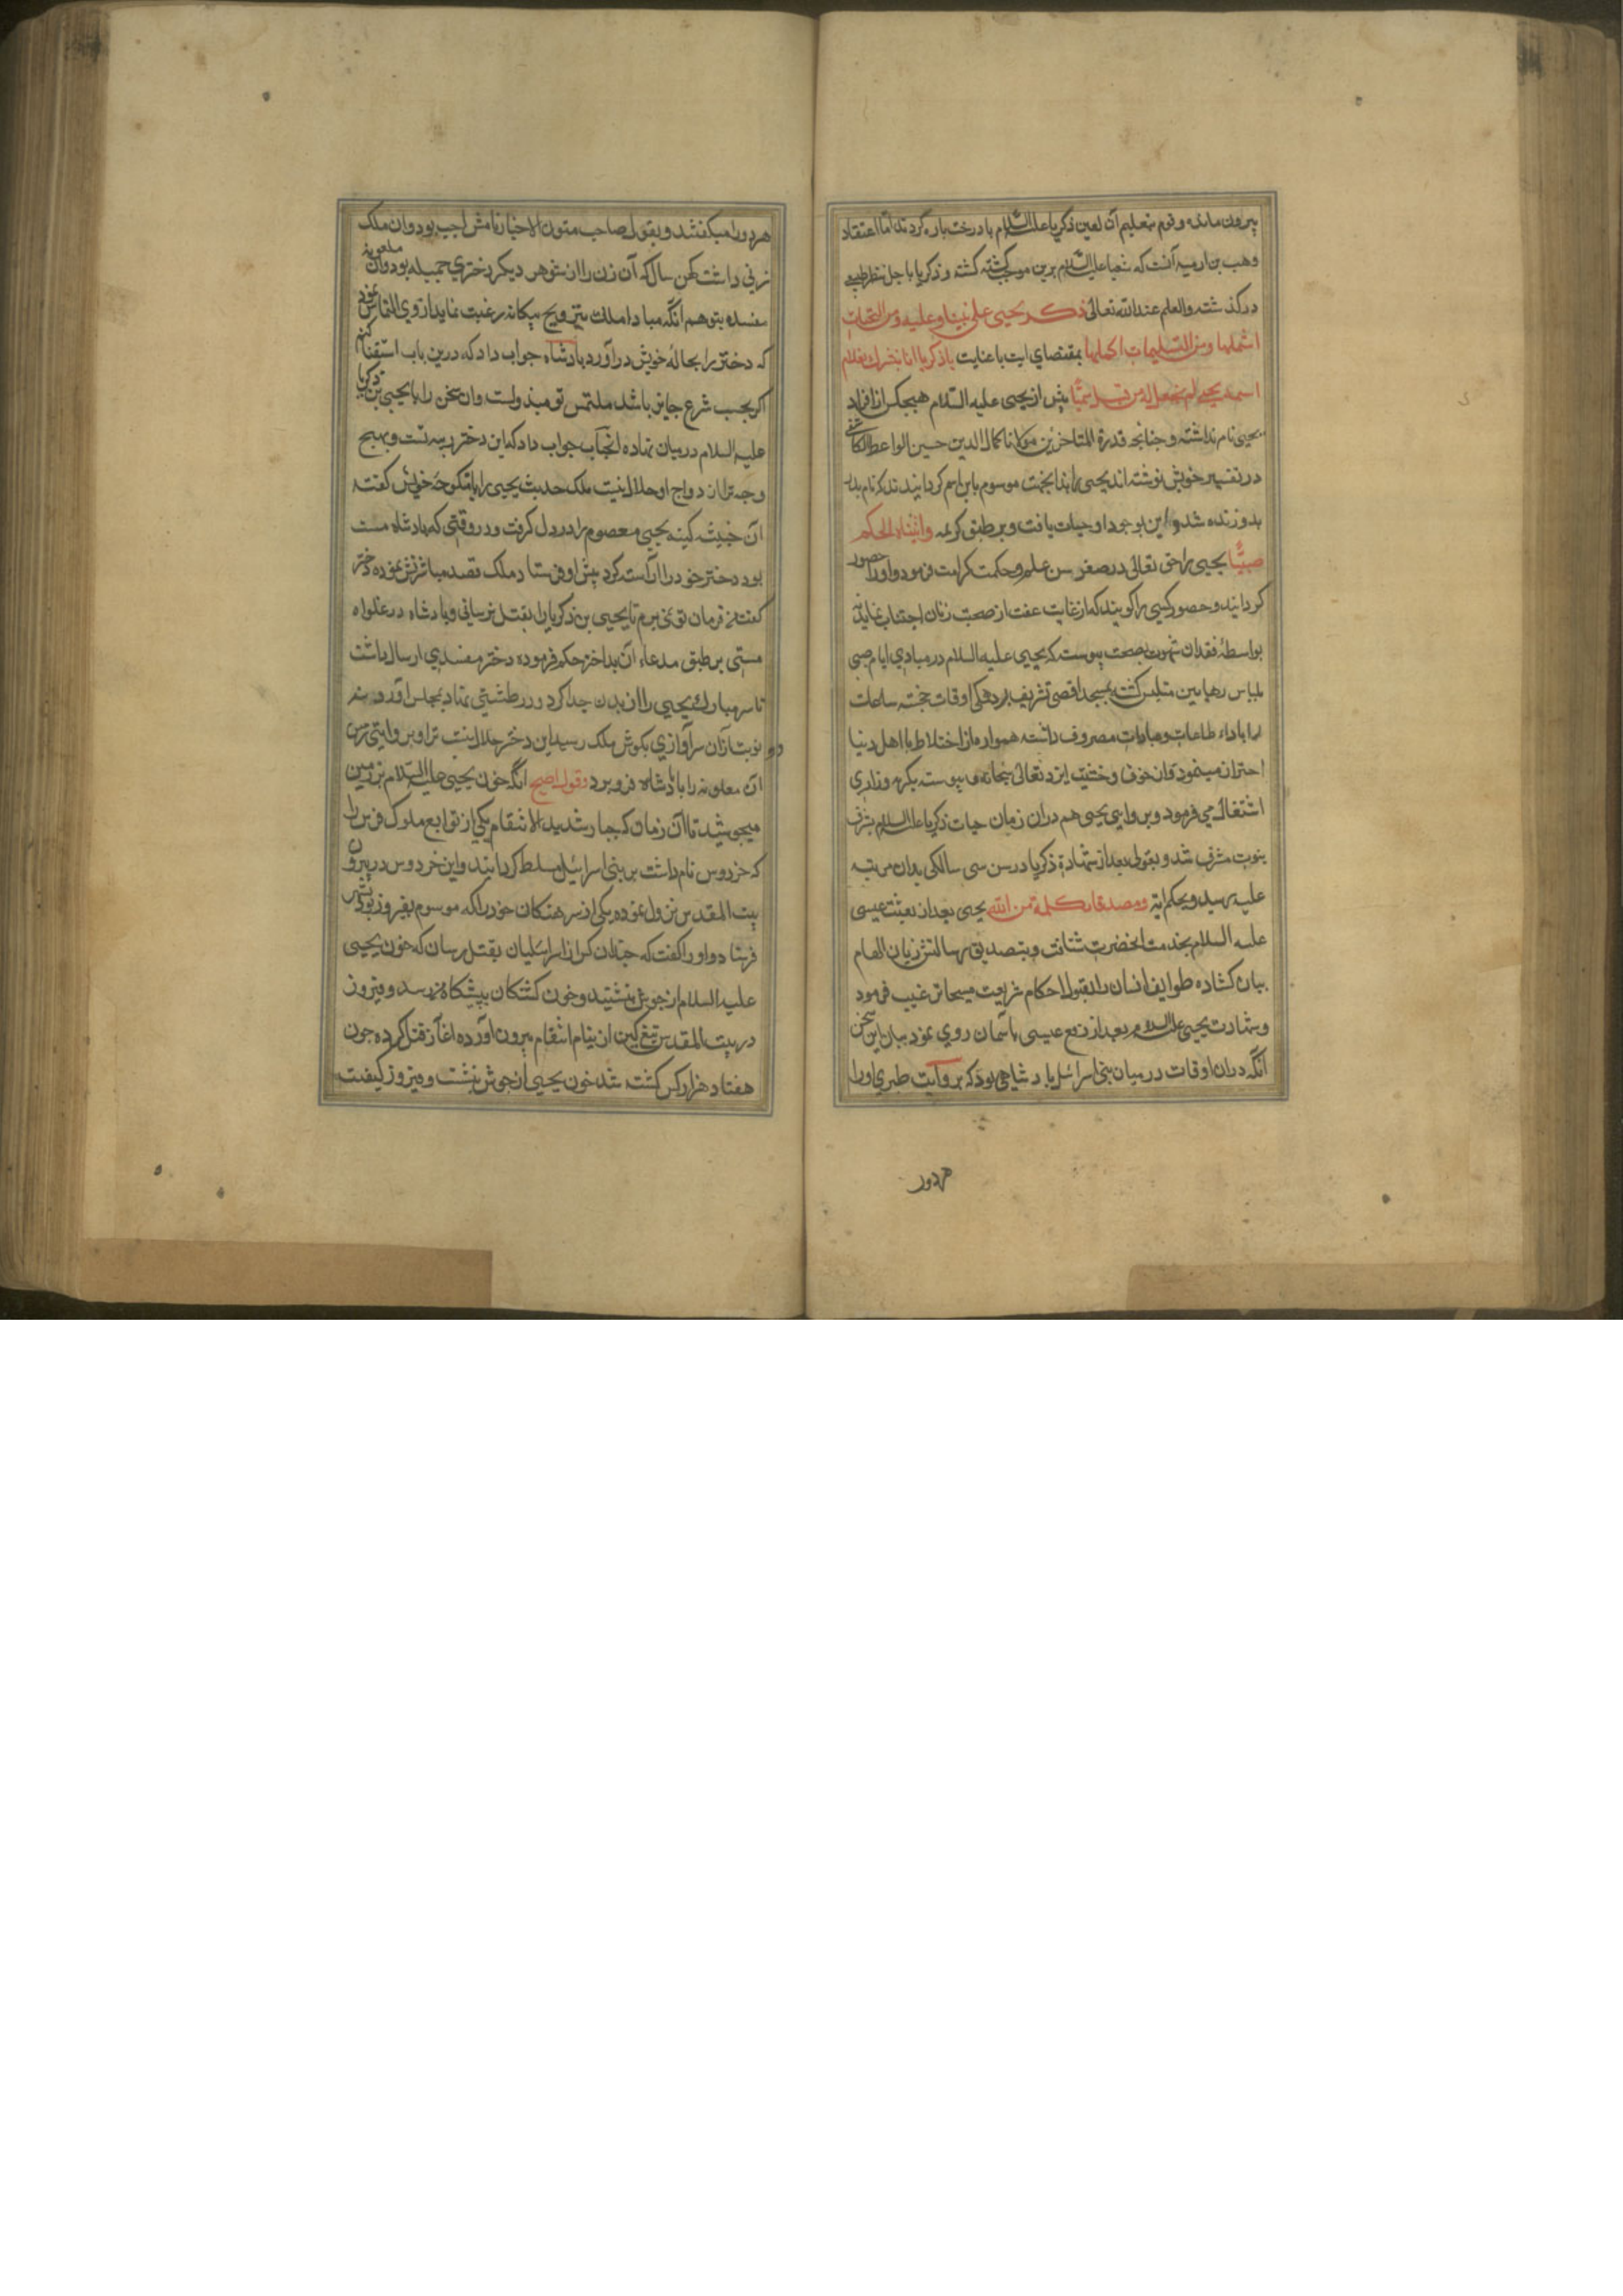 بیرون مانده و قوم بتعلیم آن لعین زکریا علیه السلام با درخت پاره کردند اما اعتقاد
وهب بن آنست که شعیا علیه السلام برین موجب کشته کشته و زکریا باجل
درکذشته والعلم عند الله تعالی ذکر یحیی علی نبینا وعلیه ومن التحیات
اشملها ومن التسلیمات اکملها بمقتضای ایت باعنایت یا زکریا انا نبشرك بغلام
اسمه یحیی لم نجعل له من قبل سمیا پیش از یحیی علیه السلام هیچکس از افراد
یحیی نام نداشته و چنانچه قدوة المتاخرین مولانا کمال الدین حسین الواعظ الکاشفی
در تفسیر خویش نوشته اند یحیی را بدانجهت موسوم باین اسم کردانیدند که نام پدر
بدو زنده شد و این بوجود او حیات یافت و بر طبق کریمه واتیناه الحکم
صبیا یحیی را حق تعالی در صغر سن علم و حکمت کرامت فرمود و او را حصور
کردانید و حصور کسی را کویند که از غایت عفت از صحبت زنان اجتناب نماید نه
بواسطه فقدان شهوت بصحت پیوسته که یحیی علیه السلام در مبادی ایام صبی
بلباس رهابین متلبس کشته بمسجد اقصی تشریف برد و همکی اوقات خجسته ساعات
را باداء طاعات و عبادات مصروف داشته همواره از اختلاط با اهل دنیا
احتراز مینمود و از خوف و خشیت ایزد تعالی سبحانه پیوسته بکریه و زاری
اشتغال می فرمود و بروایتی یحیی هم دران زمان حیات زکریا علیه السلام بشرف
نبوت مشرف شد و بقولی بعد از شهادة زکریا در سن سی سالکی بدان مرتبه
علیه رسید و بحکم ایه ومصدقا بکلمة من الله یحیی بعد از بعثت عیسی
علیه السلام بخدمت انحضرت شتافت و بتصدیق رسالتش زبان الهام
بیان کشاده طوایف انسان را بقبول احکام شریعت مسیحا ترغیب فرمود
و شهادت یحیی علیه السلام بعد از رفع عیسی باسمان روی نمود بیان این سخن
انکه دران اوقات در میان بنی اسرائیل پادشاهی بود که بروایت طبری او را
هردور
هردورا میکفتند و بقول صاحب متون الاخبار نامش لجب بود و ان ملک
زنی داشت کهن سال که آن زن را از شوهر دیکر دختری جمیله بود و ان ملعونه
مفسده بتوهم انکه مبادا ملک بتزویج بیکانه رغبت نماید از وی التماس نمود
که دختر را بحاله خویش در آورد پادشاه جواب داد که درین باب استفتا کنم
اکر بحسب شرع جایز باشد ملتمس تو مبذولست و ان سخن را با یحیی بن زکریا
علیه السلام در میان نهاده انجناب جواب داد که این دختر ربیبه تست و بهیچ
وجه ترا ازدواج او حلال نیست ملک حدیث یحیی را با منکوحه خویش کفته
آن خبیثه کینه یحیی معصوم را در دل کرفت و در وقتی که پادشاه مست
بود دختر خود را اراسته کرد پیش او فرستاد ملک قصد مباشرتش نموده دختر
کفت فرمان تو نمی برم تا یحیی بن زکریا را بقتل نرسانی و پادشاه در غلواء
مستی بر طبق مدعاء آن بداختر حکم فرموده دختر مفسدی ارسال داشت
تا سر مبارك یحیی را از بدن جدا کرد و در طشتی نهاد بمجلس اورد و سه
نوبت ازان سر آوازی بکوش ملک رسید این دختر حلال نیست ترا و بروایتی زمین
آن ملعونه را با پادشاه فرو برد و قول اصح انکه خون یحیی علیه السلام بر زمین
میجوشید تا آن زمان که جبار شدید الانتقام یکی از توابع ملوک فرس را
که خردوس نام داشت بر بنی اسرائیل مسلط کردانید و این خردوس در بیرون
بیت المقدس نزول نموده یکی از سرهنکان خود را که موسوم بفیروز بود بشهر
فرستاد و او را کفت که چندان کس از اسرائیلیان بقتل رسان که خون یحیی
علیه السلام از جوش بنشیند و خون کشتکان بپیشکاه من رسد و فیروز
در بیت المقدس تیغ کین از نیام انتقام بیرون آورده اغاز قتل کرده چون
هفتاد هزار کس کشته شد خون یحیی از جوش بنشست و فیروز کیفیت